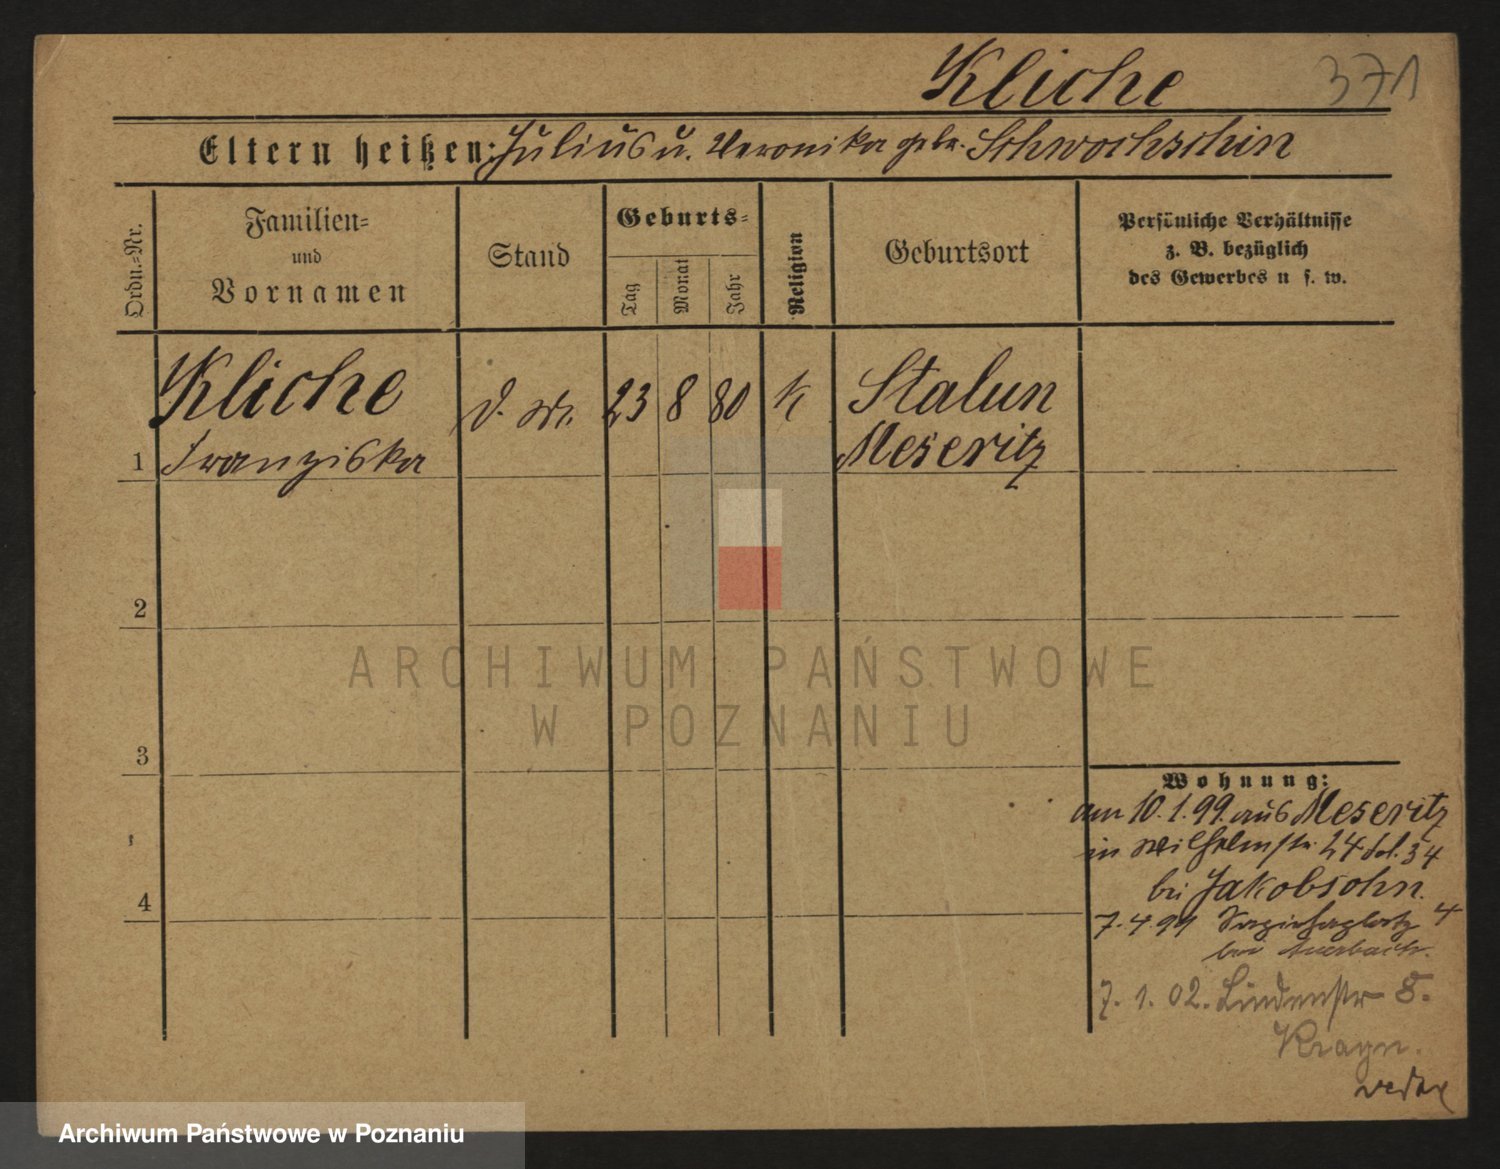 Kliche 371
Eltern heißen: Julius u. Veronika gebr. Schwochschin
Ordn.-Nr.
Familien-
und
Vornamen
Stand
Geburts-
Tag
Monat
Jahr
Religion
Geburtsort
Persönliche Verhältnisse
z. B. bezüglich
des Gewerbes u s. w.
Kliche
1 Franziska
d. M. 23 8 80 k
Stalun
Meseritz
2
3
4
ARCHIWUM PAŃSTWOWE
W POZNANIU
Wohnung:
am 10.1.99. aus Meseritz
in Wilhelmstr. 24
bei Jakobsohn.
7.4.99 4
bei Auerbach.
7. 1. 02. Lindenstr 8.
Archiwum Państwowe w Poznaniu